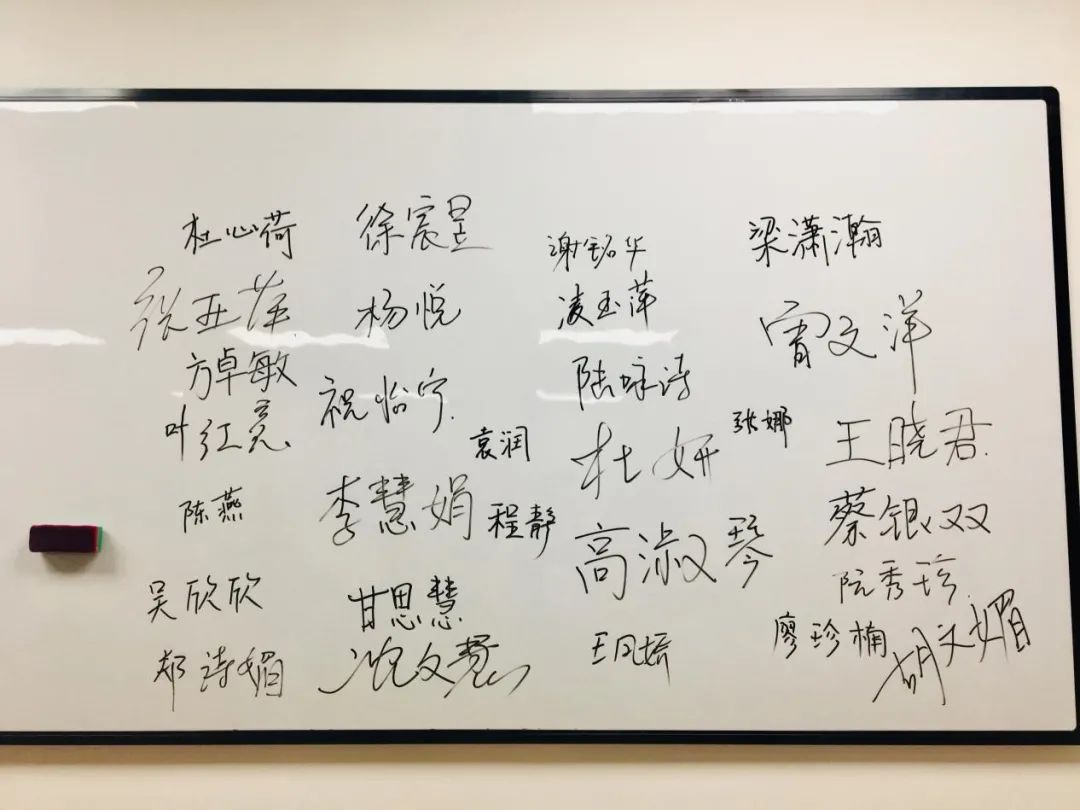 杜心荷
张亚萍
方卓敏
叶红亮
陈燕
吴欣欣
郑诗媚
徐宸昱
杨悦
祝怡宁
袁润
李慧娟
程静
甘思慧
沈文慧
谢铭华
凌玉萍
陆咏诗
杜妍
张娜
高淑琴
梁潇瀚
雷文洋
王晓君
蔡银双
阮秀珍
廖珍楠
胡文媚